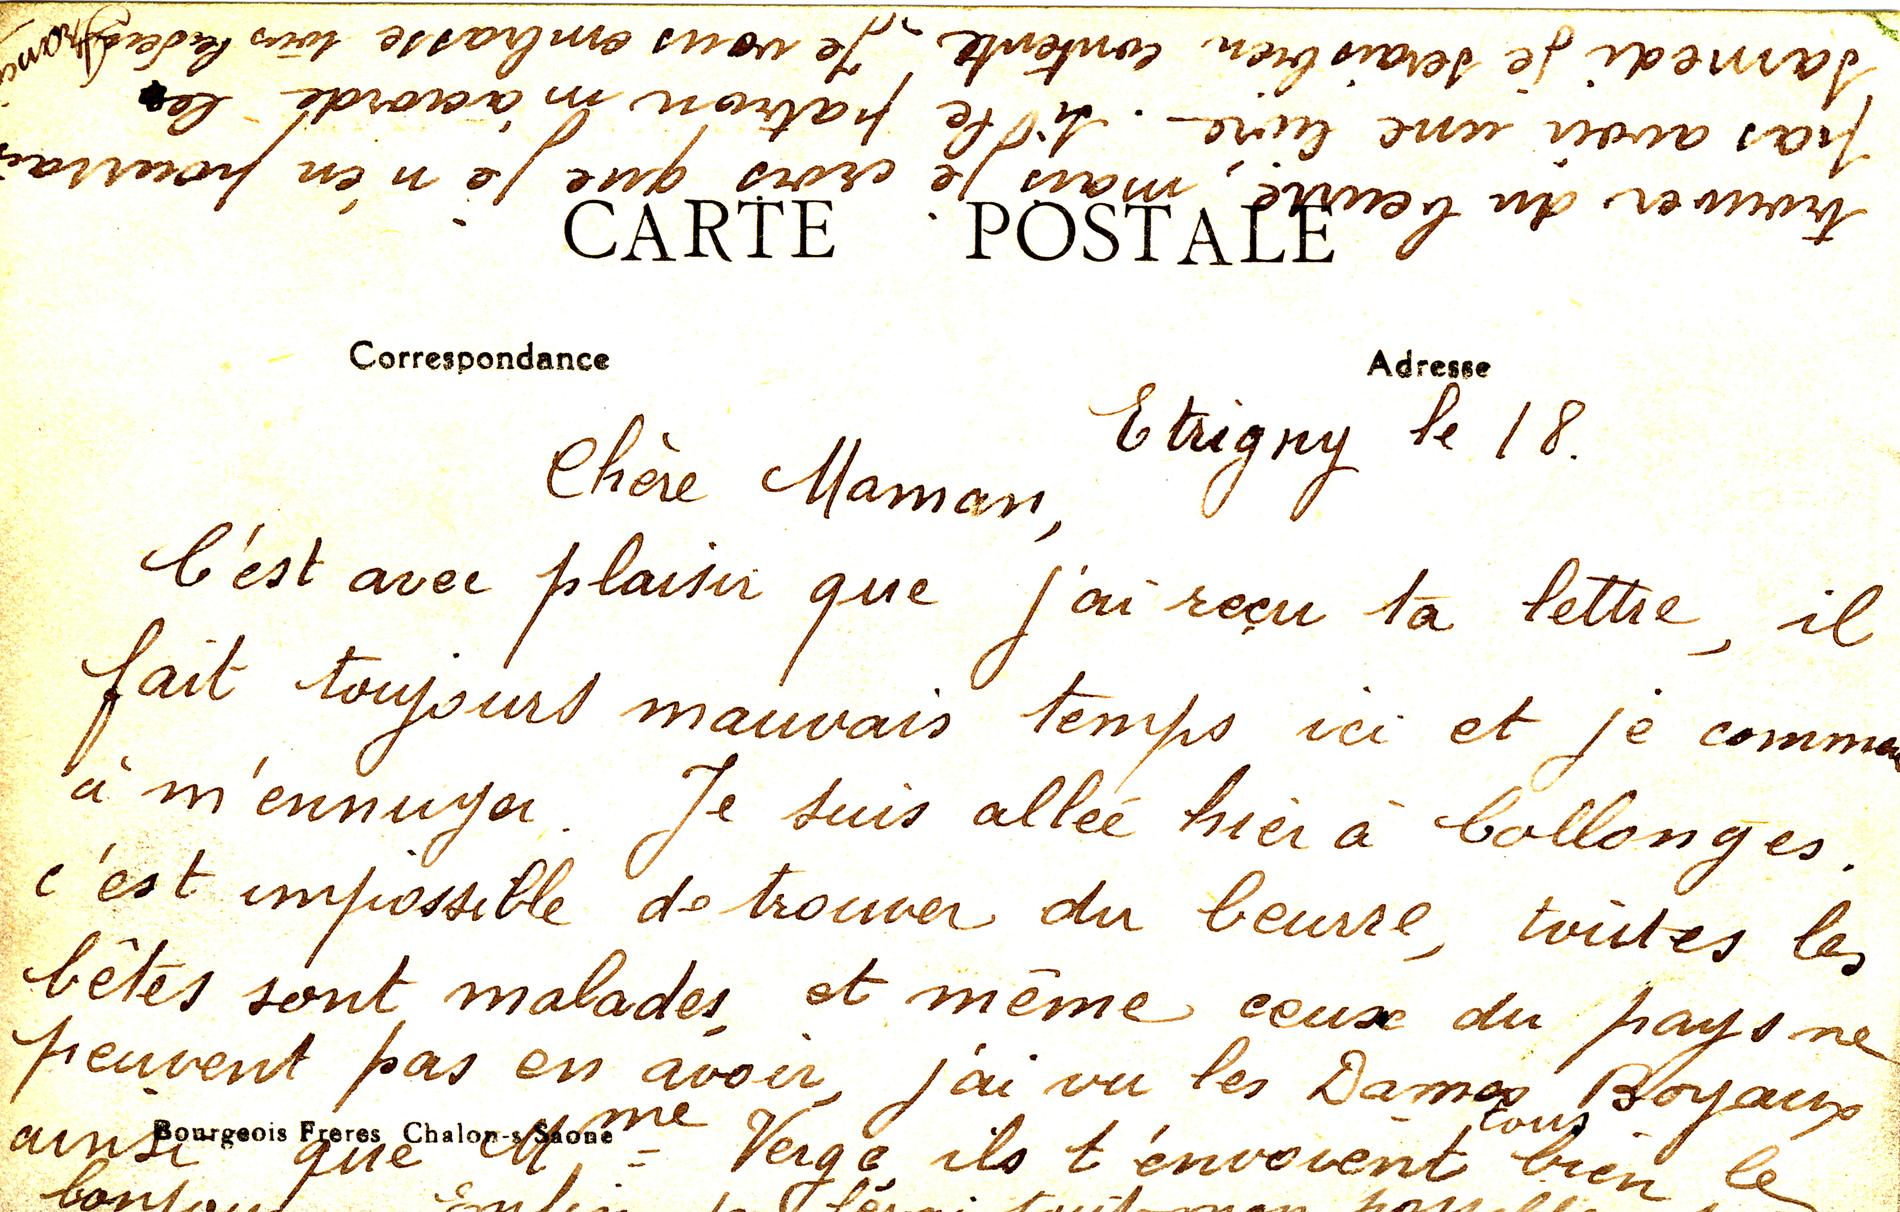 CARTE POSTALE
Correspondance
Adresse
Etrigny le 18.
Chère Maman,
C'est avec plaisir que j'ai reçu ta lettre, il
fait toujours mauvais temps ici et je comme
à m'ennuyer. Je suis allée hier à Collonges.
c'est impossible de trouver du beurre, toutes les
bêtes sont malades, et même ceux du pays ne
peuvent pas en avoir, j'ai vu les Dames Boyaux
ainsi que Mme Vergé, ils t'envoient tous bien le
bonjour. Enfin je ferai tout mon possible
Bourgeois Freres Chalon-s-Saone
trouver du beurre, mais je crois que je n'en pourrais
pas avoir une livre. Si le patron m'accorde le
samedi je serais bien contente. Je vous embrasse tous